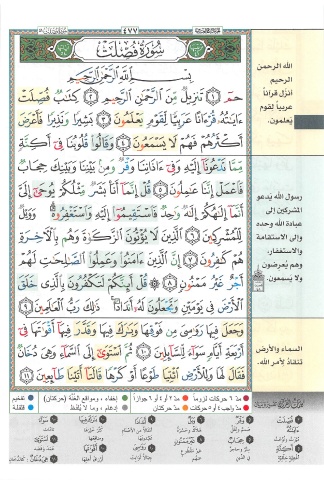 ٤٧٧
سُورَةُ فُصِّلَتْ
بِسْمِ اللَّهِ الرَّحْمَٰنِ الرَّحِيمِ
حمٓ ١ تَنزِيلٌ مِّنَ الرَّحْمَٰنِ الرَّحِيمِ ٢ كِتَابٌ فُصِّلَتْ
ءَايَاتُهُۥ قُرْءَانًا عَرَبِيًّا لِّقَوْمٍ يَعْلَمُونَ ٣ بَشِيرًا وَنَذِيرًا فَأَعْرَضَ
أَكْثَرُهُمْ فَهُمْ لَا يَسْمَعُونَ ٤ وَقَالُوا۟ قُلُوبُنَا فِىٓ أَكِنَّةٍ
مِّمَّا تَدْعُونَآ إِلَيْهِ وَفِىٓ ءَاذَانِنَا وَقْرٌ وَمِنۢ بَيْنِنَا وَبَيْنِكَ حِجَابٌ
فَاعْمَلْ إِنَّنَا عَامِلُونَ ٥ قُلْ إِنَّمَآ أَنَا۠ بَشَرٌ مِّثْلُكُمْ يُوحَىٰٓ إِلَىَّ
أَنَّمَآ إِلَٰهُكُمْ إِلَٰهٌ وَاحِدٌ فَاسْتَقِيمُوٓا۟ إِلَيْهِ وَاسْتَغْفِرُوهُ وَوَيْلٌ
لِّلْمُشْرِكِينَ ٦ الَّذِينَ لَا يُؤْتُونَ الزَّكَوٰةَ وَهُم بِالْءَاخِرَةِ
هُمْ كَافِرُونَ ٧ إِنَّ الَّذِينَ ءَامَنُوا۟ وَعَمِلُوا۟ الصَّالِحَاتِ لَهُمْ
أَجْرٌ غَيْرُ مَمْنُونٍ ٨ قُلْ أَئِنَّكُمْ لَتَكْفُرُونَ بِالَّذِى خَلَقَ
الْأَرْضَ فِى يَوْمَيْنِ وَتَجْعَلُونَ لَهُۥٓ أَندَادًا ذَٰلِكَ رَبُّ الْعَالَمِينَ ٩
وَجَعَلَ فِيهَا رَوَاسِىَ مِن فَوْقِهَا وَبَارَكَ فِيهَا وَقَدَّرَ فِيهَآ أَقْوَاتَهَا فِىٓ
أَرْبَعَةِ أَيَّامٍ سَوَآءً لِّلسَّآئِلِينَ ١٠ ثُمَّ اسْتَوَىٰٓ إِلَى السَّمَآءِ وَهِىَ دُخَانٌ
فَقَالَ لَهَا وَلِلْأَرْضِ ائْتِيَا طَوْعًا أَوْ كَرْهًا قَالَتَآ أَتَيْنَا طَآئِعِينَ ١١
الله الرحمن
الرحيم
أنزل قرآناً
عربياً لقوم
يَعلمون.
رسول الله يَدعو
المشركين إلى
عبادة الله وحده
وإلى الاستقامة
والاستغفار،
وهم يُعرضون
ولا يَسمعون.
السماء والأرض
تنقادُ لأمر الله.
مدّ ٦ حركات لزوماً مدّ ٢ أو ٤ أو ٦ جوازاً إخفاء، ومواقع الغُنَّة (حركتان) تفخيم
مدّ واجب ٤ أو ٥ حركات مدّ حركتان إدغام، وما لا يُلفَظ قلقلة